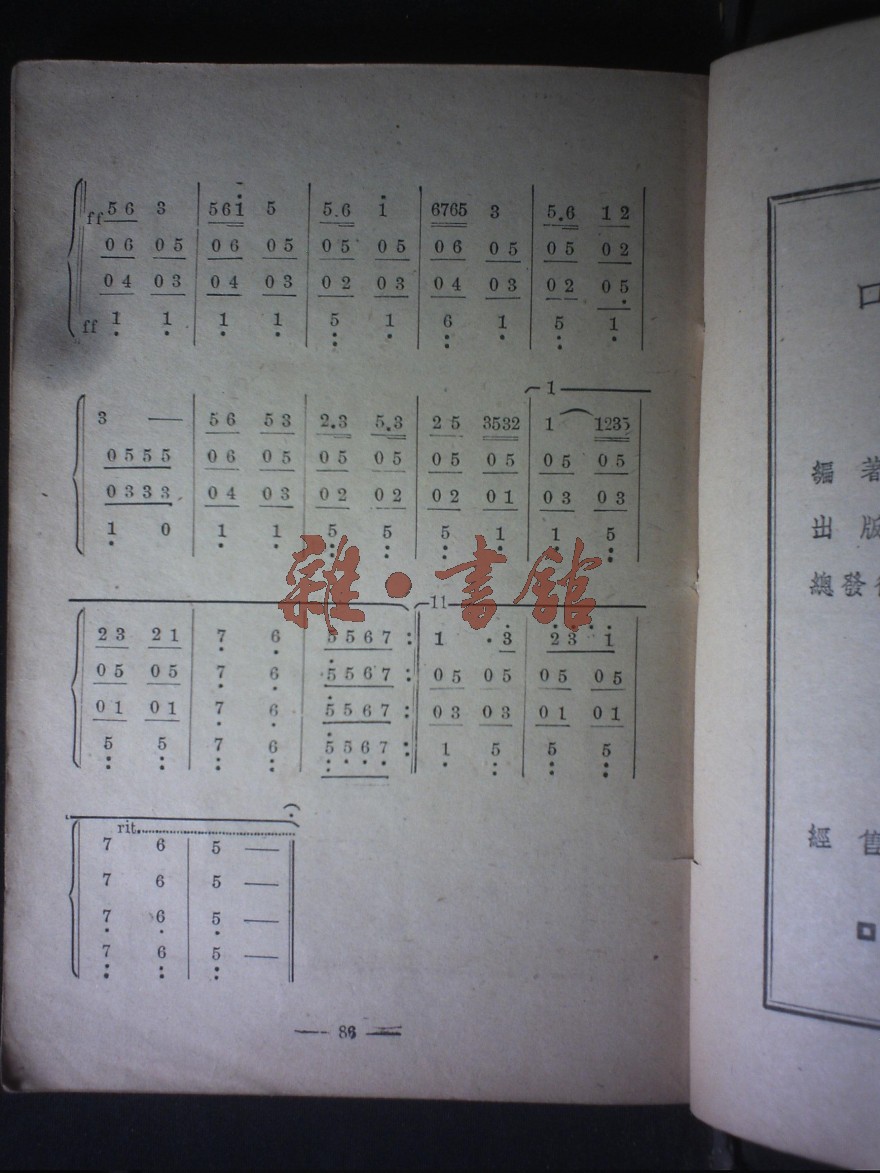 ff 56 3 | 561 5 | 5.6 1 | 6765 3 | 5.6 12
06 05 | 06 05 | 05 05 | 06 05 | 05 02
04 03 | 04 03 | 02 03 | 04 03 | 02 05
ff 1 1 | 1 1 | 5 1 | 6 1 | 5 1
1
3 — | 56 53 | 2.3 5.3 | 25 3532 | 1 1235
0555 | 06 05 | 05 05 | 05 05 | 05 05
0333 | 04 03 | 02 02 | 02 01 | 03 03
1 0 | 1 1 | 5 5 | 5 1 | 1 5
11
23 21 | 7 6 | 5567 :|| 1 .3 | 23 1
05 05 | 7 6 | 5567 :|| 05 05 | 05 05
01 01 | 7 6 | 5567 :|| 03 03 | 01 01
5 5 | 7 6 | 5567 :|| 1 5 | 5 5
rit.
7 6 | 5 —
7 6 | 5 —
7 6 | 5 —
7 6 | 5 —
— 86 —
雜·書館
編著
出版
總發
經售